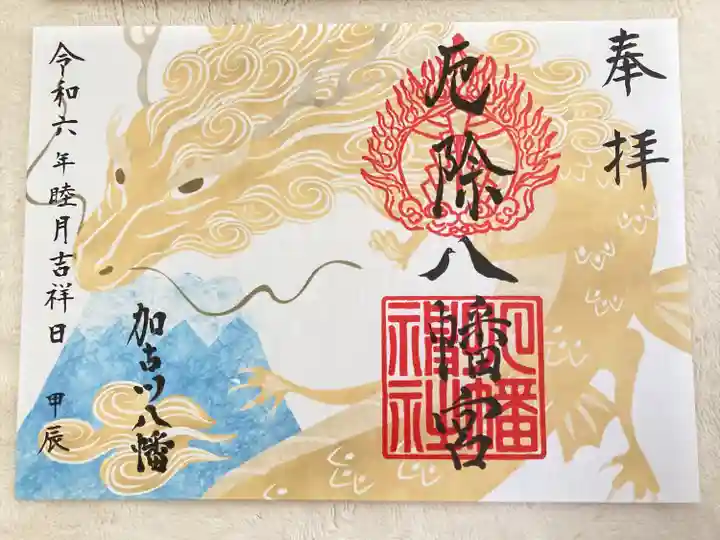 奉拝
厄除八幡宮
八幡神社
加古川八幡
令和六年睦月吉祥日
甲辰